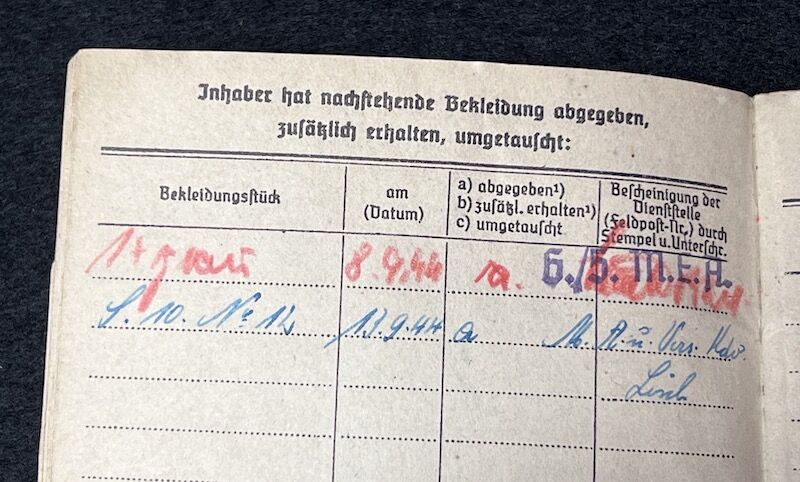 Inhaber hat nachstehende Bekleidung abgegeben,
zusätzlich erhalten, umgetauscht:
Bekleidungsstück
am
(Datum)
a) abgegeben¹)
b) zusätzl. erhalten¹)
c) umgetauscht
Bescheinigung der
Dienststelle
(Feldpost-Nr.) durch
Stempel u. Unterschr.
8.9.44 a. 6./S. M.E.A.
S. 10. No 12 13.9.44 a M. A. u. Vers. Kdo.